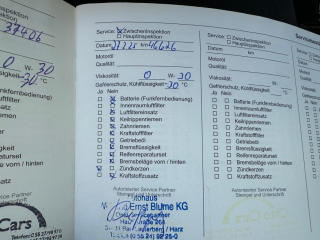 Inspektion
37406
W-30
ssigkeit -30 °C
Funkfernbedienung)
filter
z
men
fen
n
keit
ratur
e vorn / hinten
satz
Service Partner
Unterschrift
Cars
Service: Zwischeninspektion
Hauptinspektion
Datum km 46626
Motoröl
Qualität
Viskosität: 0 W-30
Gefrierschutz, Kühlflüssigkeit -30 °C
Ja Nein
Batterie (Funkfernbedienung)
Innenraumluftfilter
Luftfiltereinsatz
Keilrippenriemen
Zahnriemen
Kraftstofffilter
Getriebeöl
Bremsflüssigkeit
Reifenreparaturset
Bremsbeläge vorn / hinten
Zündkerzen
Kraftstoffzusatz
Autorisierter Service Partner
Stempel und Unterschrift
Autohaus
Ernst Blume KG
Service: Zwischeninspektion
Hauptinspektion
Datum km
Motoröl
Qualität
Viskosität: W-
Gefrierschutz, Kühlflüssigkeit
Ja Nein
Batterie (Funkfernbedienung)
Innenraumluftfilter
Luftfiltereinsatz
Keilrippenriemen
Zahnriemen
Kraftstofffilter
Getriebeöl
Bremsflüssigkeit
Reifenreparaturset
Bremsbeläge vorn / hinten
Zündkerzen
Kraftstoffzusatz
Autorisierter Service Partner
Stempel und Unterschrift